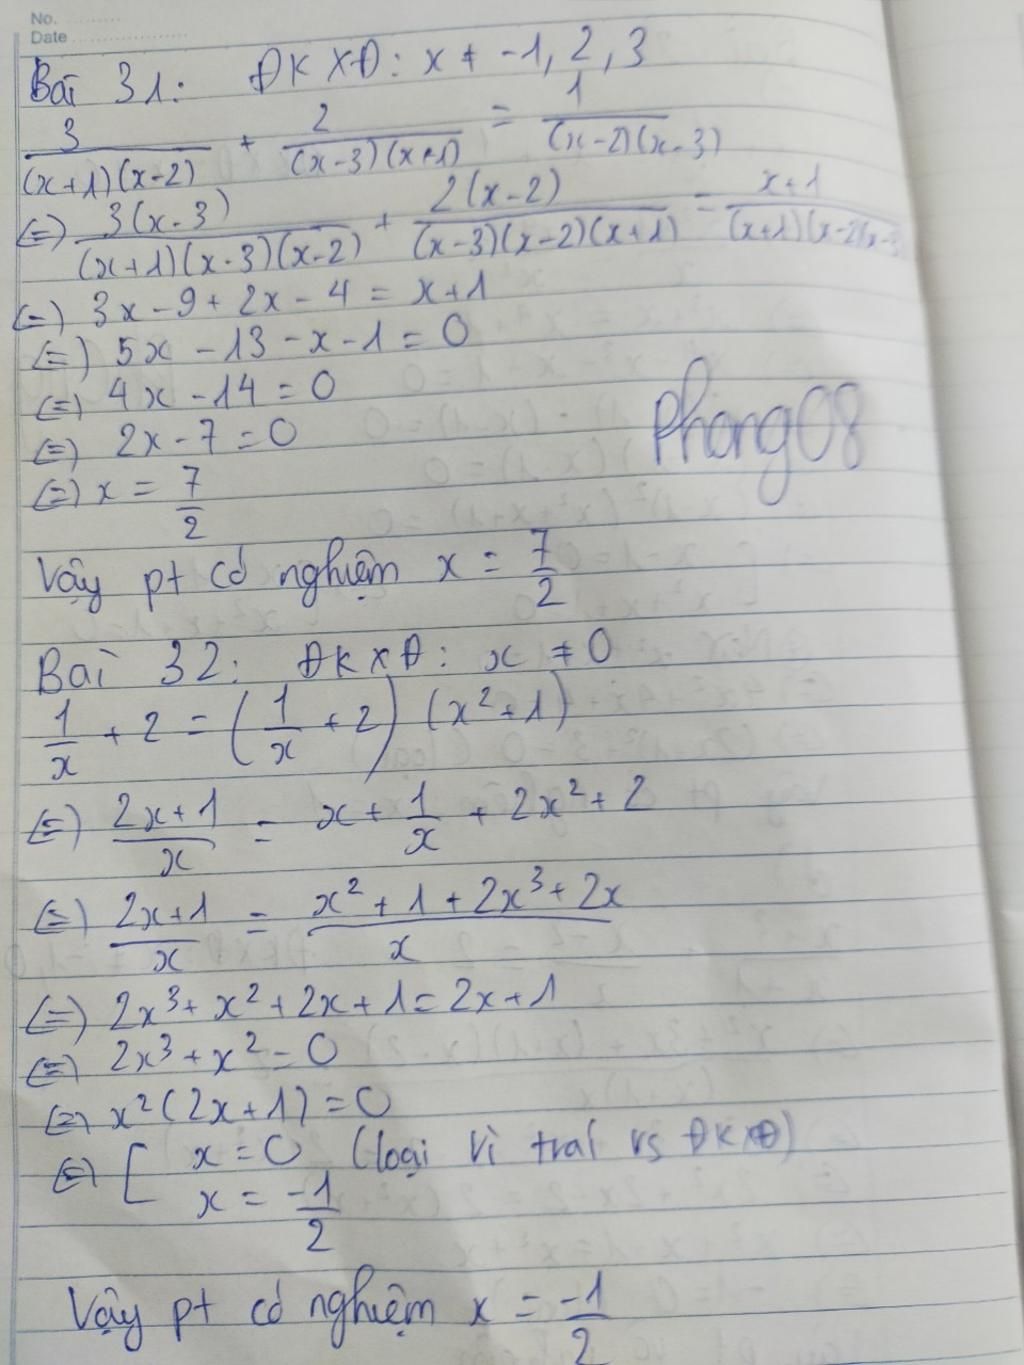 No.
Date
Bài 31: ĐKXĐ: x ≠ -1, 2, 3
3/((x+1)(x-2)) + 2/((x-3)(x+1)) = 1/((x-2)(x-3))
(=) 3(x-3)/((x+1)(x-3)(x-2)) + 2(x-2)/((x-3)(x-2)(x+1)) = (x+1)/((x+1)(x-2)(x-3))
(=) 3x - 9 + 2x - 4 = x+1
(=) 5x - 13 - x - 1 = 0
(=) 4x - 14 = 0
(=) 2x - 7 = 0
Phong08
(=) x = 7/2
Vậy pt có nghiệm x = 7/2
Bài 32: ĐKXĐ: x ≠ 0
1/x + 2 = (1/x + 2) (x² + 1)
(=) (2x+1)/x = x + 1/x + 2x² + 2
(=) (2x+1)/x = (x² + 1 + 2x³ + 2x)/x
(=) 2x³ + x² + 2x + 1 = 2x + 1
(=) 2x³ + x² = 0
(=) x²(2x+1) = 0
(=) [ x = 0 (loại vì trái vs ĐKXĐ)
x = -1/2
Vậy pt có nghiệm x = -1/2